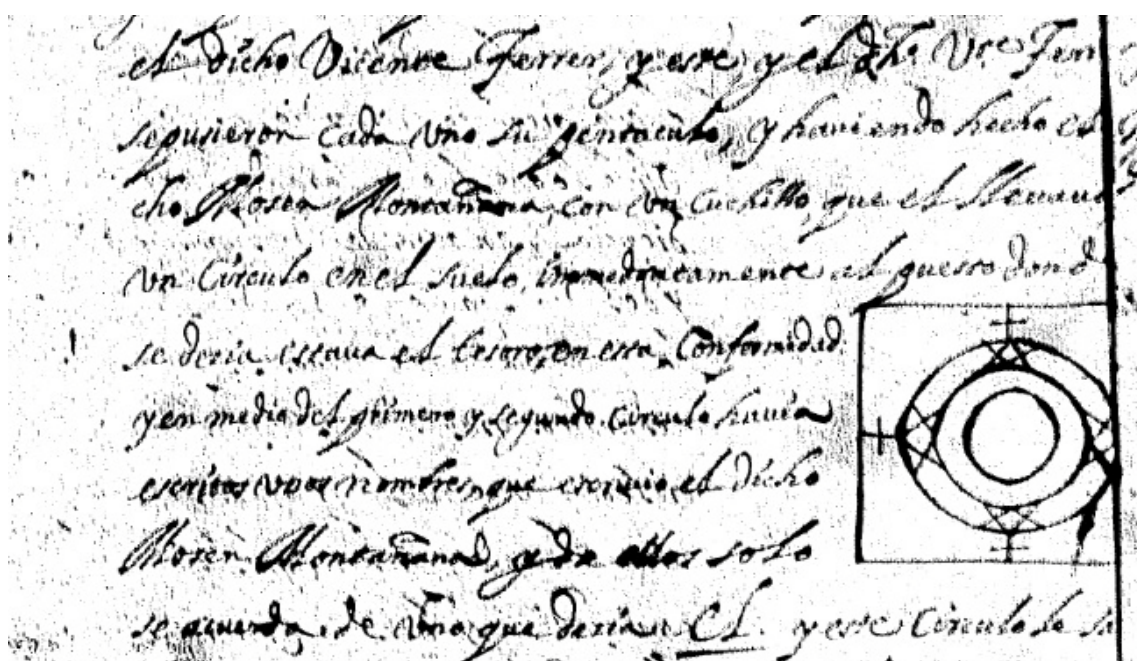 el dicho Vicente Ferrer, y este, y el dho. Vte Ferr
se pusieron cada vno su pentaculo, y haviendo hecho el
cho Mosen Montañana, con vn cuchillo, que el llevava
vn Circulo en el suelo, immediatamente al puesto dond
se dezia estava el tesoro, en esta Conformidad
y en medio del primero y segundo circulo havia
escritos vnos nombres, que escrivio el dicho
Mosen Montañana, y de ellos solo
se acuerda de vno que dezia El y este Circulo le